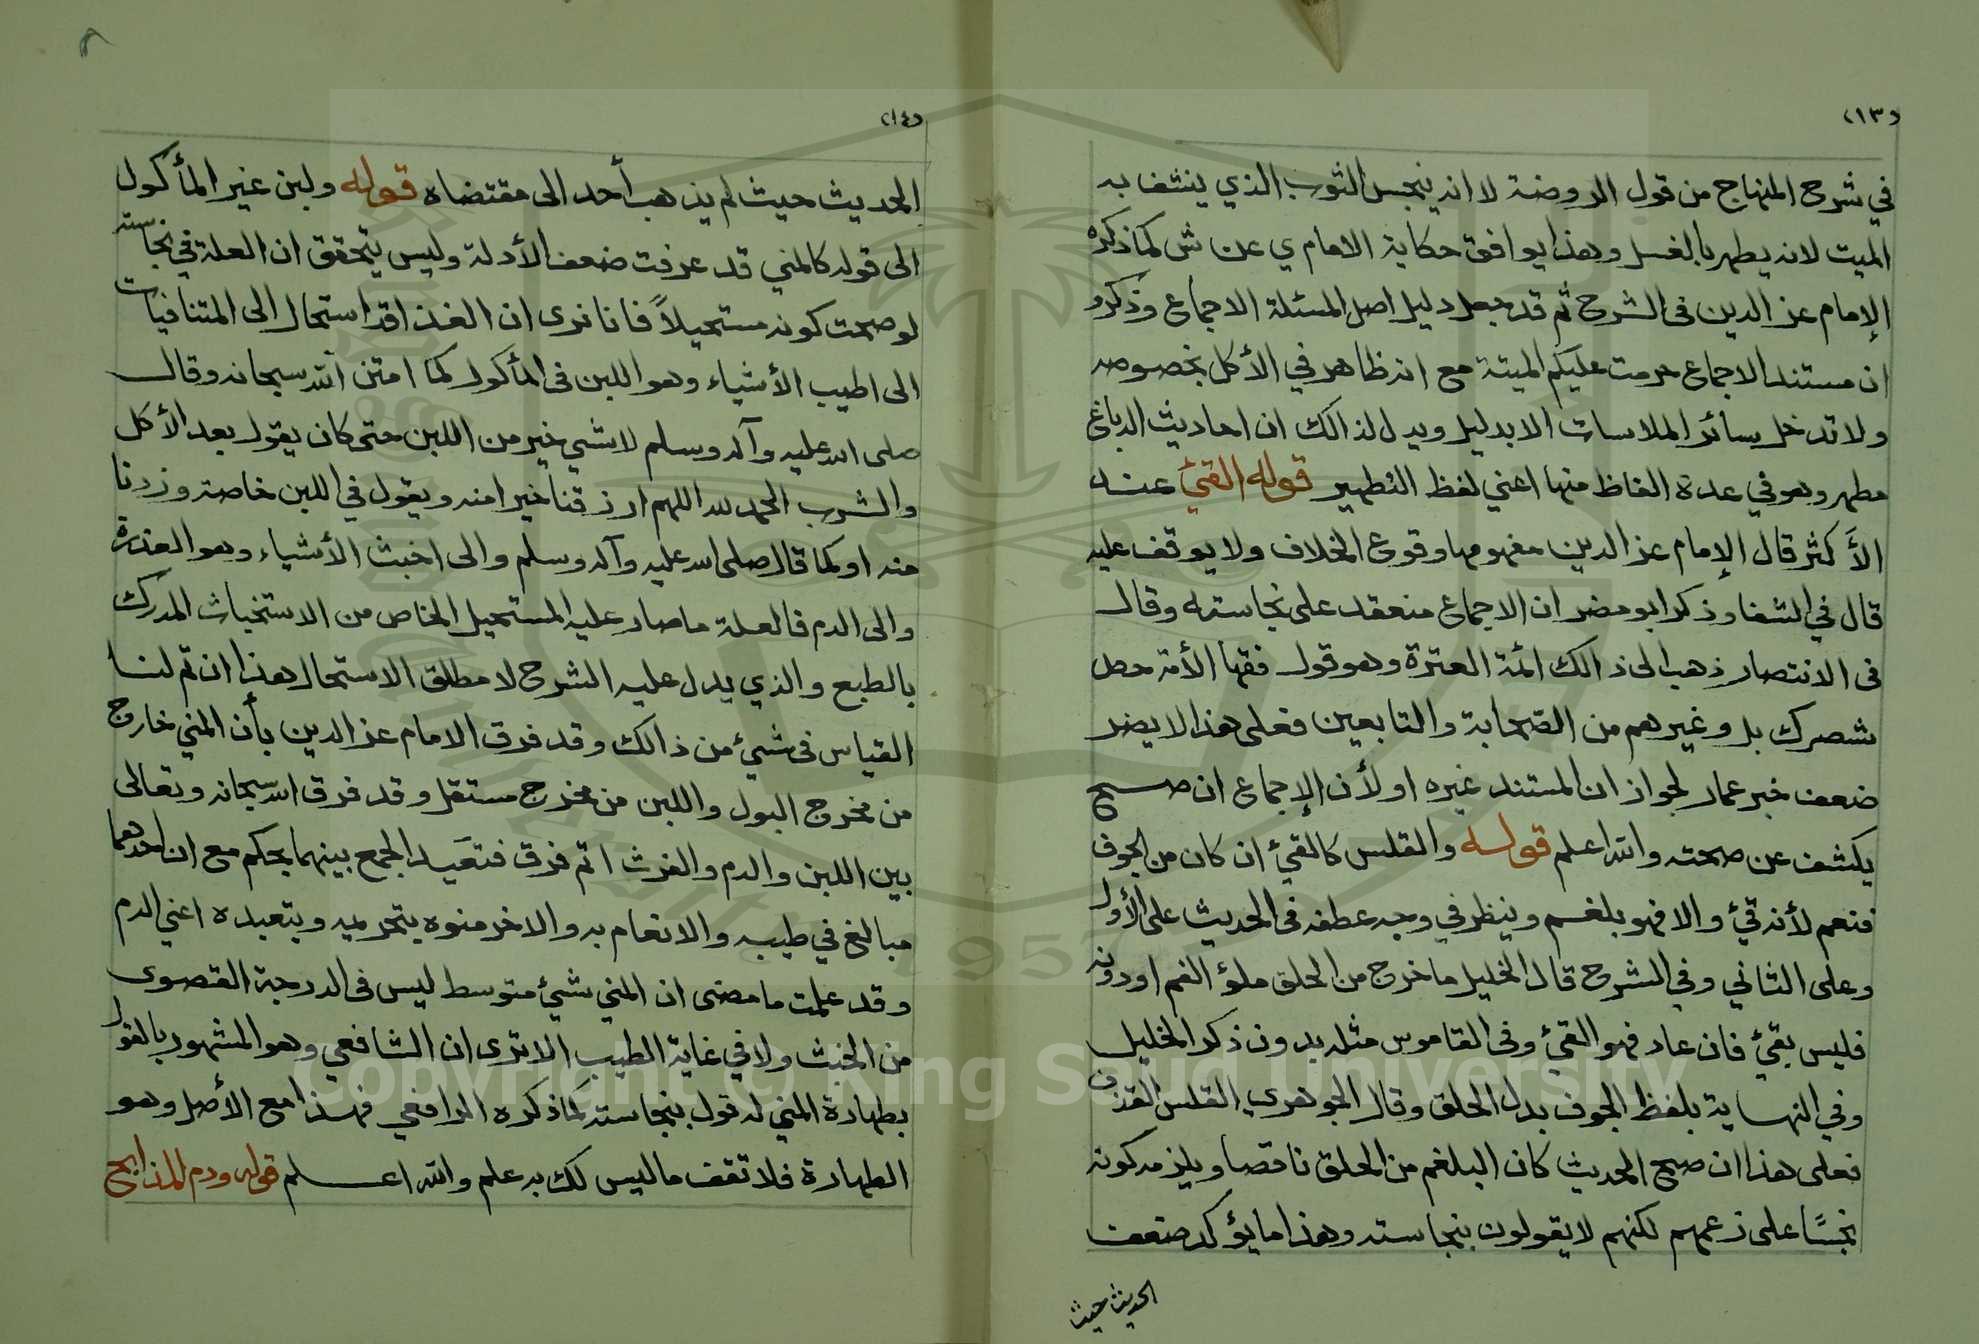 (١٣)
في شرح المنهاج من قول الروضة لا انه ينجس الثوب الذي ينشف به
الميت لانه يطهر بالغسل وهذا يوافق حكاية الامام ي عن ش كما ذكره
الإمام عز الدين فى الشرح ثم قد جعل دليل اصل المسئلة الاجماع وذكره
ان مستند الاجماع حرمت عليكم الميتة مع انه ظاهر في الأكل بخصوصه
ولا تدخل سائر الملابسات الا بدليل ويدل لذالك ان احاديث الدباغ
مطهر وهو في عدة الفاظ منها اعني لفظ التطهير قوله القيئ عند
الأكثر قال الإمام عز الدين مفهومها وقوع الخلاف ولا يوقف عليه
قال في الشفا وذكر ابو مضر ان الاجماع منعقد على نجاسته وقال
فى الانتصار ذهب الى ذالك ائمة العترة وهو قول فقها الأمة حص
شصرك بل وغيرهم من الصحابة والتابعين فعلى هذا لا يضر
ضعف خبر عمار لجواز ان المستند غيره او لأن الإجماع ان صح
يكشف عن صحته والله اعلم قوله والقلس كالقيئ ان كان من الجوف
فنعم لأنه قيئ والا فهو بلغم وينظر في وجه عطفه فى الحديث على الأول
وعلى الثاني وفي الشرح قال الخليل ما خرج من الحلق ملؤ الفم او دونه
فليس بقيئ فان عاد فهو القيئ وفى القاموس مثله بدون ذكر الخليل
وفي النهاية بلفظ الجوف بدل الحلق وقال الجوهري القلس القذف
فعلى هذا ان صح الحديث كان البلغم من الحلق ناقصا ويلزم كونه
نجسًا على زعمهم لكنهم لا يقولون بنجاسته وهذا ما يؤكد ضعف
الحديث حيث
(١٤)
٨
الحديث حيث لم يذهب أحد الى مقتضاه قوله ولبن غير المأكول
الى قوله كالمني قد عرفت ضعف الأدلة وليس يتحقق ان العلة في نجاسته
لو صحت كونه مستحيلاً فانا نرى ان الغذا قد استحال الى المتنافيات
الى اطيب الأشياء وهو اللبن فى المأكول كما امتن الله سبحانه وقال
صلى الله عليه وآله وسلم لا شيئ خير من اللبن حتى كان يقول بعد الأكل
والشرب الحمد لله اللهم ارزقنا خيرا منه ويقول في اللبن خاصة وزدنا
منه او كما قال صلى الله عليه وآله وسلم والى اخبث الأشياء وهو العذرة
والى الدم فالعلة ما صار عليه المستحيل الخاص من الاستخباث المدرك
بالطبع والذي يدل عليه الشرح لا مطلق الاستحال هذا ان تم لنا
القياس فى شيئ من ذالك وقد فرق الامام عز الدين بأن المني خارج
من مخرج البول واللبن من مخرج مستقل وقد فرق الله سبحانه وتعالى
بين اللبن والدم والفرث اتم فرق فتعَيد الجمع بينهما بحكم مع ان احدهما
مبالغ في طيبه والانعام به والاخر منوه بتحريمه وبتعبده اعني الدم
وقد علمت ما مضى ان المني شيئ متوسط ليس فى الدرجة القصوى
من الخبث ولا في غاية الطيب الا ترى ان الشافعي وهو المشهور بالقول
بطهارة المني له قول بنجاسته كما ذكره الرافعي فهذا مع الأصل وهو
الطهارة فلا تقف ما ليس لك به علم والله اعلم قوله ودم المذابح
Copyright © King Saud University
1957